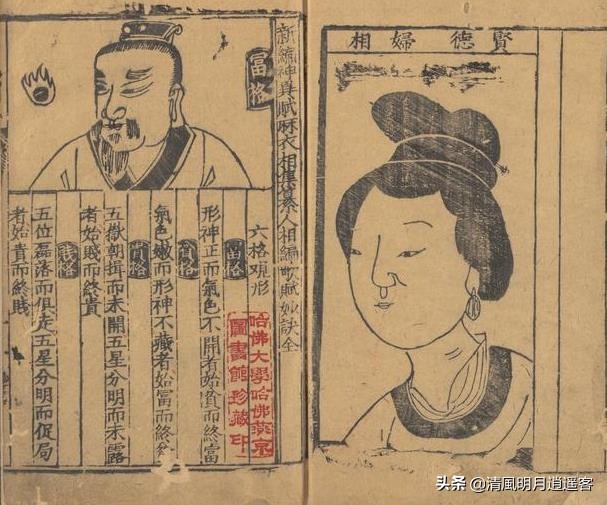 賢德婦相
神異賦麻衣相集纂人相編歌賦妙訣全
富格
六格觀形
富格
形神正而氣色不開者始貧而終富
貧格
氣色嫩而形神不藏者始富而終貧
貴格
五嶽朝揖而未開五星分明而未露
者始賤而終貴
賤格
五位磊落而俱走五星分明而促局
者始貴而終賤
哈佛大學哈佛燕京
圖書館珍藏印
头条 @清風明月逍遥客